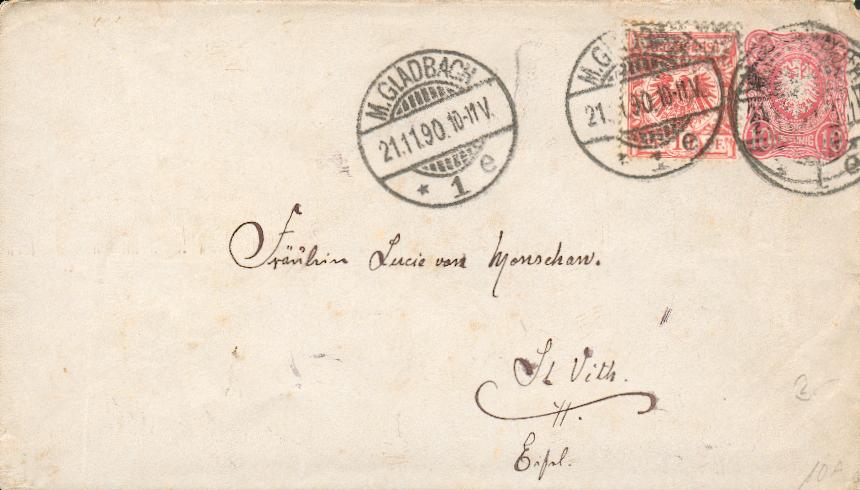 M. GLADBACH
21.11.90. 10-11 V.
* 1 e
M. GLADB
21. 1.90. 10-11 V.
* 1 e
10 10
Fräulein Lucie von Monschaw.
St Vith.
Eifel.